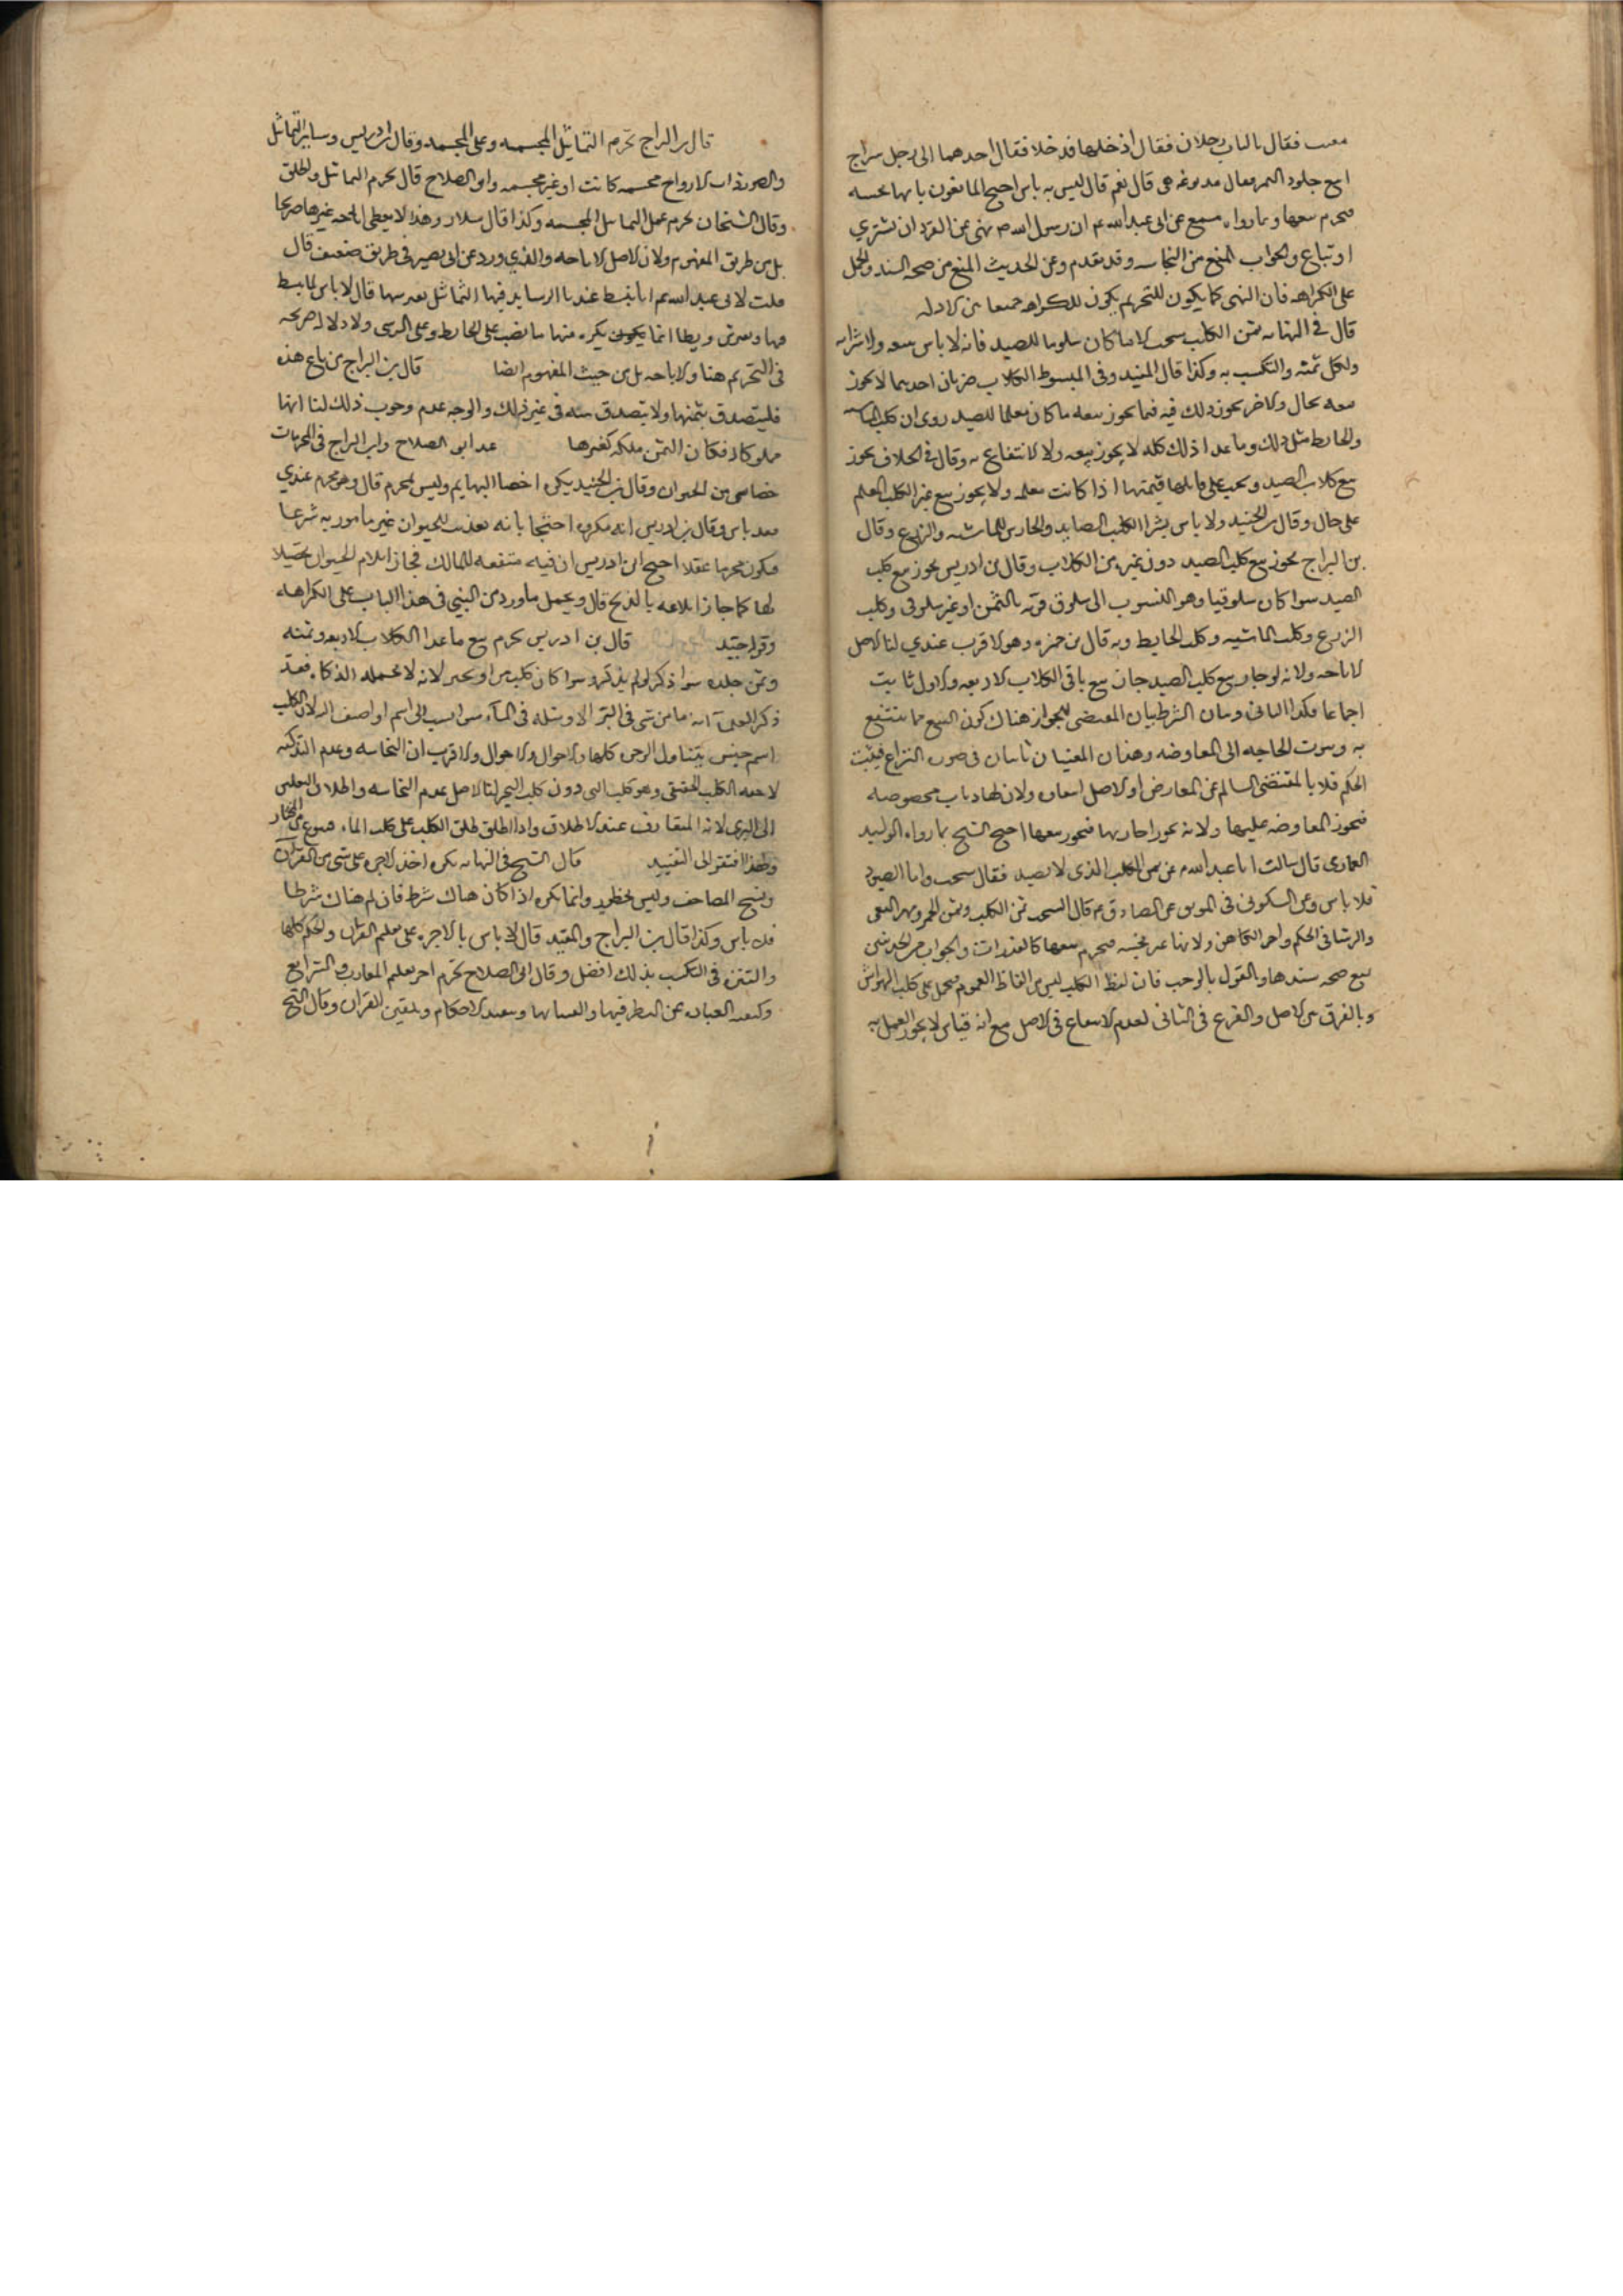 معتب فقال بالباب رجلان فقال ادخلهما فدخلا فقال احدهما انى رجل سراج
ابيع جلود النمر فقال مدبوغه هى قال نعم قال ليس به باس احتج المانعون بانها نجسه
فيحرم بيعها وبما رواه مسمع عن ابى عبد الله عم ان رسول الله ص نهى عن القرد ان يشترى
او يباع والجواب المنع من النجاسه وقد تقدم وعن الحديث المنع من صحه السند والحمل
على الكراهه فان النهى كما يكون للتحريم يكون للكراهه جمعا بين الادله
قال فى النهايه ثمن الكلب سحت الا ما كان سلوقيا للصيد فانه لا باس ببيعه وشرائه
واكل ثمنه والتكسب به وكذا قال المفيد وفى المبسوط الكلاب ضربان احدهما لا يجوز
بيعه بحال والاخر يجوز ذلك فيه فما يجوز بيعه ما كان معلما للصيد روى ان كلب الماشيه
والحايط مثل ذلك وما عدا ذلك كله لا يجوز بيعه ولا الانتفاع به وقال فى الخلاف يجوز
بيع كلاب الصيد ويجب على قاتلها قيمتها اذا كانت معلمه ولا يجوز بيع غير الكلب المعلم
على حال وقال بن الجنيد ولا باس بشرا الكلب الصايد والحارس للماشيه والزرع وقال
بن البراج يجوز بيع كلب الصيد دون غيره من الكلاب وقال بن ادريس يجوز بيع كلب
الصيد سوا كان سلوقيا وهو المنسوب الى سلوق قريه باليمن او غير سلوقى وكلب
الزرع وكلب الماشيه وكلب الحايط وبه قال بن حمزه وهو الاقرب عندي لنا الاصل
الاباحه ولانه لو جاز بيع كلب الصيد جاز بيع باقى الكلاب الاربعه والاول ثابت
اجماعا فكذا الثانى وبيان الشرطيه ان المقتضى للجواز هناك كون المبيع مما ينتفع
به وثبوت الحاجه الى المعاوضه وهذان المعنيان ثابتان فى صوره النزاع فيثبت
الحكم قلا بالمقتضى السالم عن المعارض اذ الاصل انتفاوه ولان لها ديات مخصوصه
فتجوز المعاوضه عليها ولانه يجوز اجارتها فيجوز بيعها احتج الشيخ بما رواه الوليد
العمارى قال سالت ابا عبد الله عم عن ثمن الكلب الذى لا يصيد فقال سحت واما الصيود
فلا باس وعن السكونى فى الموثق عن الصادق عم قال السحت ثمن الكلب وثمن الخمر ومهر البغى
والرشا فى الحكم واجر الكاهن ولانها عين نجسه فيحرم بيعها كالعذرات والجواب عن الحديثين
بمنع صحه سندهما والقول بالموجب فان لفظ الكلب ليس من الفاظ العموم فيحمل على كلب الهراش
وبالفرق بين الاصل والفرع فى الثانى لعدم الانتفاع فى الاصل مع انه قياس لا يجوز العمل به
قال بن البراج تحرم التماثيل المجسمه وعلى المجسمه وقال بن ادريس وساير التماثيل
والصور ذوات الارواح مجسمه كانت او غير مجسمه وابو الصلاح قال يحرم التماثيل واطلق
وقال الشيخان يحرم عمل التماثيل المجسمه وكذا قال سلار وهذا لا يعطى اباحه غيرها صريحا
بل من طريق المفهوم ولان الاصل الاباحه والذي ورد عن ابى بصير فى طريق ضعيف قال
قلت لابى عبد الله عم انا نبسط عندنا الوسايد فيها التماثيل ونفرشها قال لا باس لما يبسط
منها ويفرش ويطا انما يكره منها ما نصب على الحايط وعلى السرير ولا دلاله صريحه
فى التحريم هنا والاباحه بل من حيث المفهوم ايضا قال بن البراج من باع هذه
فليتصدق بثمنها ولا يتصدق منه فى غير ذلك والوجه عدم وجوب ذلك لنا انها
مملوكه له فكان الثمن ملكه كغيرها عد ابو الصلاح وابن البراج فى المحرمات
خصا شى من الحيوان وقال بن الجنيد يكره اخصا البهايم وليس بمحرم قال وهو محرم عندي
بعد باس وقال بن ادريس انه مكروه احتجا بانه تعذيب للحيوان غير مامور به شرعا
فيكون محرما عقلا احتج ابن ادريس ان فيه منفعه للمالك فجاز ايلام الحيوان تحصيلا
لها كما جاز ايلامه بالذبح قال ويحمل ما ورد من النهى فى هذا الباب على الكراهه
وقواه جيد قال بن ادريس يحرم بيع ما عدا الكلاب الاربعه وثمنه
وثمن جلده سوا ذكى او لم يذكى وسوا كان كلب بر او بحر لانه لا تحمله الذكاه فقد
ذكر بعض انه ما من شى فى البر الا ومثله فى الماء سوا نسب الى اسم او اضيف اليه لان الكلب
اسم جنس يتناول الوحوش كلها والاحوال والاقرب ان النجاسه وعدم التذكيه
لاحقه الكلب الحقيقى وهو كلب البر دون كلب البحر لنا الاصل عدم النجاسه واطلاق
الى البرى لانه المتعارف عند الاطلاق واذا اطلق الكلب على كلب الماء فبنوع من المجاز
ولهذا افتقر الى التقييد قال الشيخ فى النهايه يكره اخذ الاجره على شى من القران
ونسخ المصاحف وليس بمحظور وانما يكره اذا كان هناك شرط فان لم يكن هناك شرط
فلا باس وكذا قال بن البراج والمفيد قال لا باس بالاجره على تعليم القران والحكم كلها
والتنزه فى التكسب بذلك افضل وقال ابو الصلاح تحرم اجر تعليم المعارف والشرايع
وكيفيه العباده عن النظر فيها والفتيا بها وتنفيذ الاحكام وتلقين القران وقال الشيخ